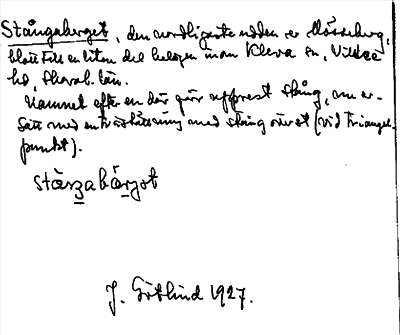 Stångaberget, den nordligaste udden av Mösseberg,
blott till en liten del belägen inom Kleva sn, Vilske
hd, Skarab. län.
Namnet efter en där förr upprest stång, nu er-
satt med en träställning med stång överst (vid triangel-
punkt).
J. Götlind 1927.